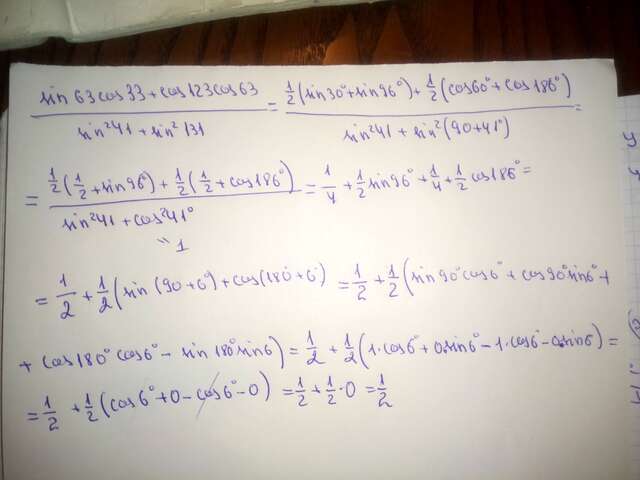 sin 63 cos 33 + cos 123 cos 63 / sin²41 + sin²131 = ½(sin 30° + sin 96°) + ½(cos 60° + cos 186°) / sin²41 + sin²(90+41°) =
= ½(½ + sin 96°) + ½(½ + cos 186°) / sin²41 + cos²41° = ¼ + ½ sin 96° + ¼ + ½ cos 186° =
" 1
= ½ + ½(sin (90+6°) + cos(180+6)) = ½ + ½(sin 90° cos 6° + cos 90° sin 6° +
+ cos 180° cos 6° - sin 180° sin 6) = ½ + ½(1·cos 6° + 0·sin 6° - 1·cos 6° - 0·sin 6) =
= ½ + ½(cos 6° + 0 - cos 6° - 0) = ½ + ½·0 = ½